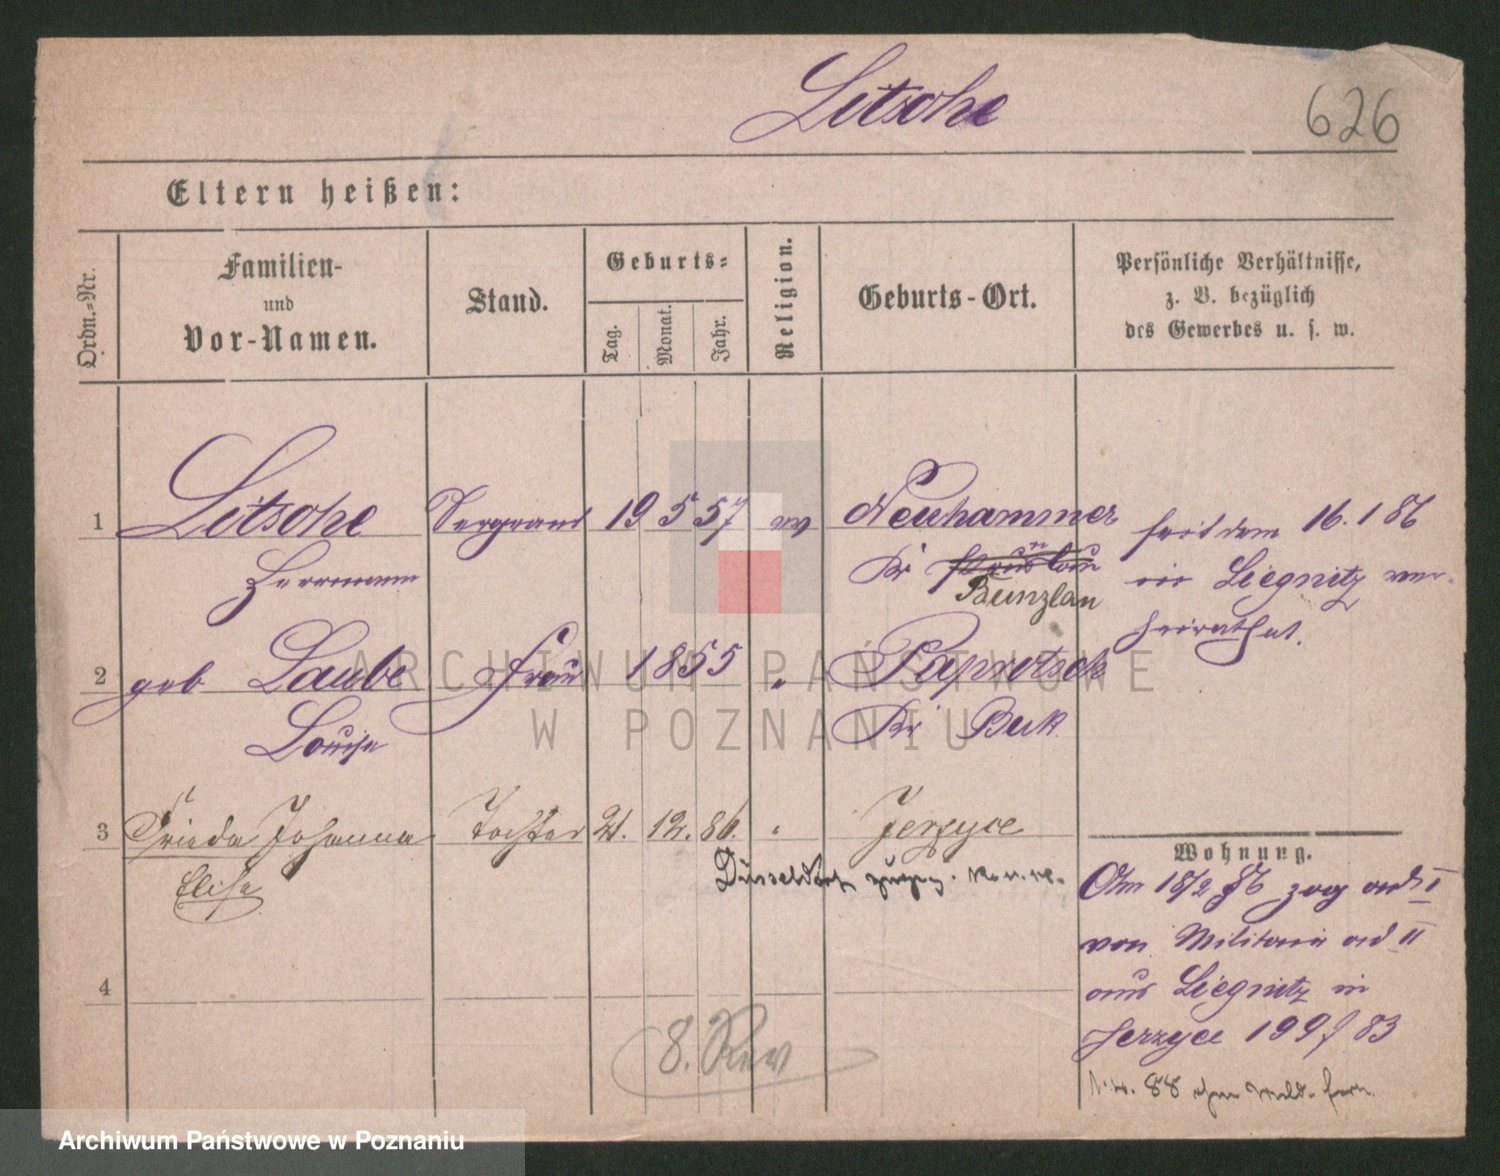 Litsche
626
Eltern heißen:
Ordn.-Nr.
Familien-
und
Vor-Namen.
Stand.
Geburts-
Tag.
Monat.
Jahr.
Religion.
Geburts-Ort.
Persönliche Verhältnisse,
z. B. bezüglich
des Gewerbes u. s. w.
1 Litsche Sergeant 19 5 57 ev Neuhammer
Herrmann Kr Bunzlau
seit dem 16. 1 86
in Liegnitz ver-
heirathet.
2 geb Laube Frau 1855 " Paprotsch
Louise Kr
3 Frieda Johanna Tochter 21. 12. 86. " Jerzyce
Elise
Düsseldorf
4
Wohnung.
Am 18/2 86 zog ord I
von Militair ord II
aus Liegnitz in
Jerzyce 199 / 83
88
8. Rev
ARCHIWUM PAŃSTWOWE
W POZNANIU
Archiwum Państwowe w Poznaniu